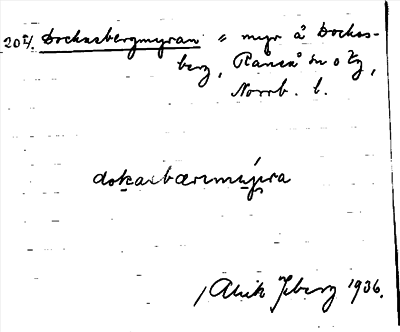 Dockasbergmyran = myr å Dockas-
berg, Råneå sn o tg,
Norrb. l.
dokasbærsmy̱ra
Alrik Iberg 1936.